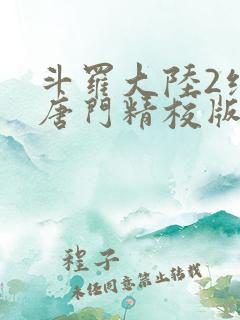 斗羅大陸2
唐門精校版
程子
未任同意禁止转载